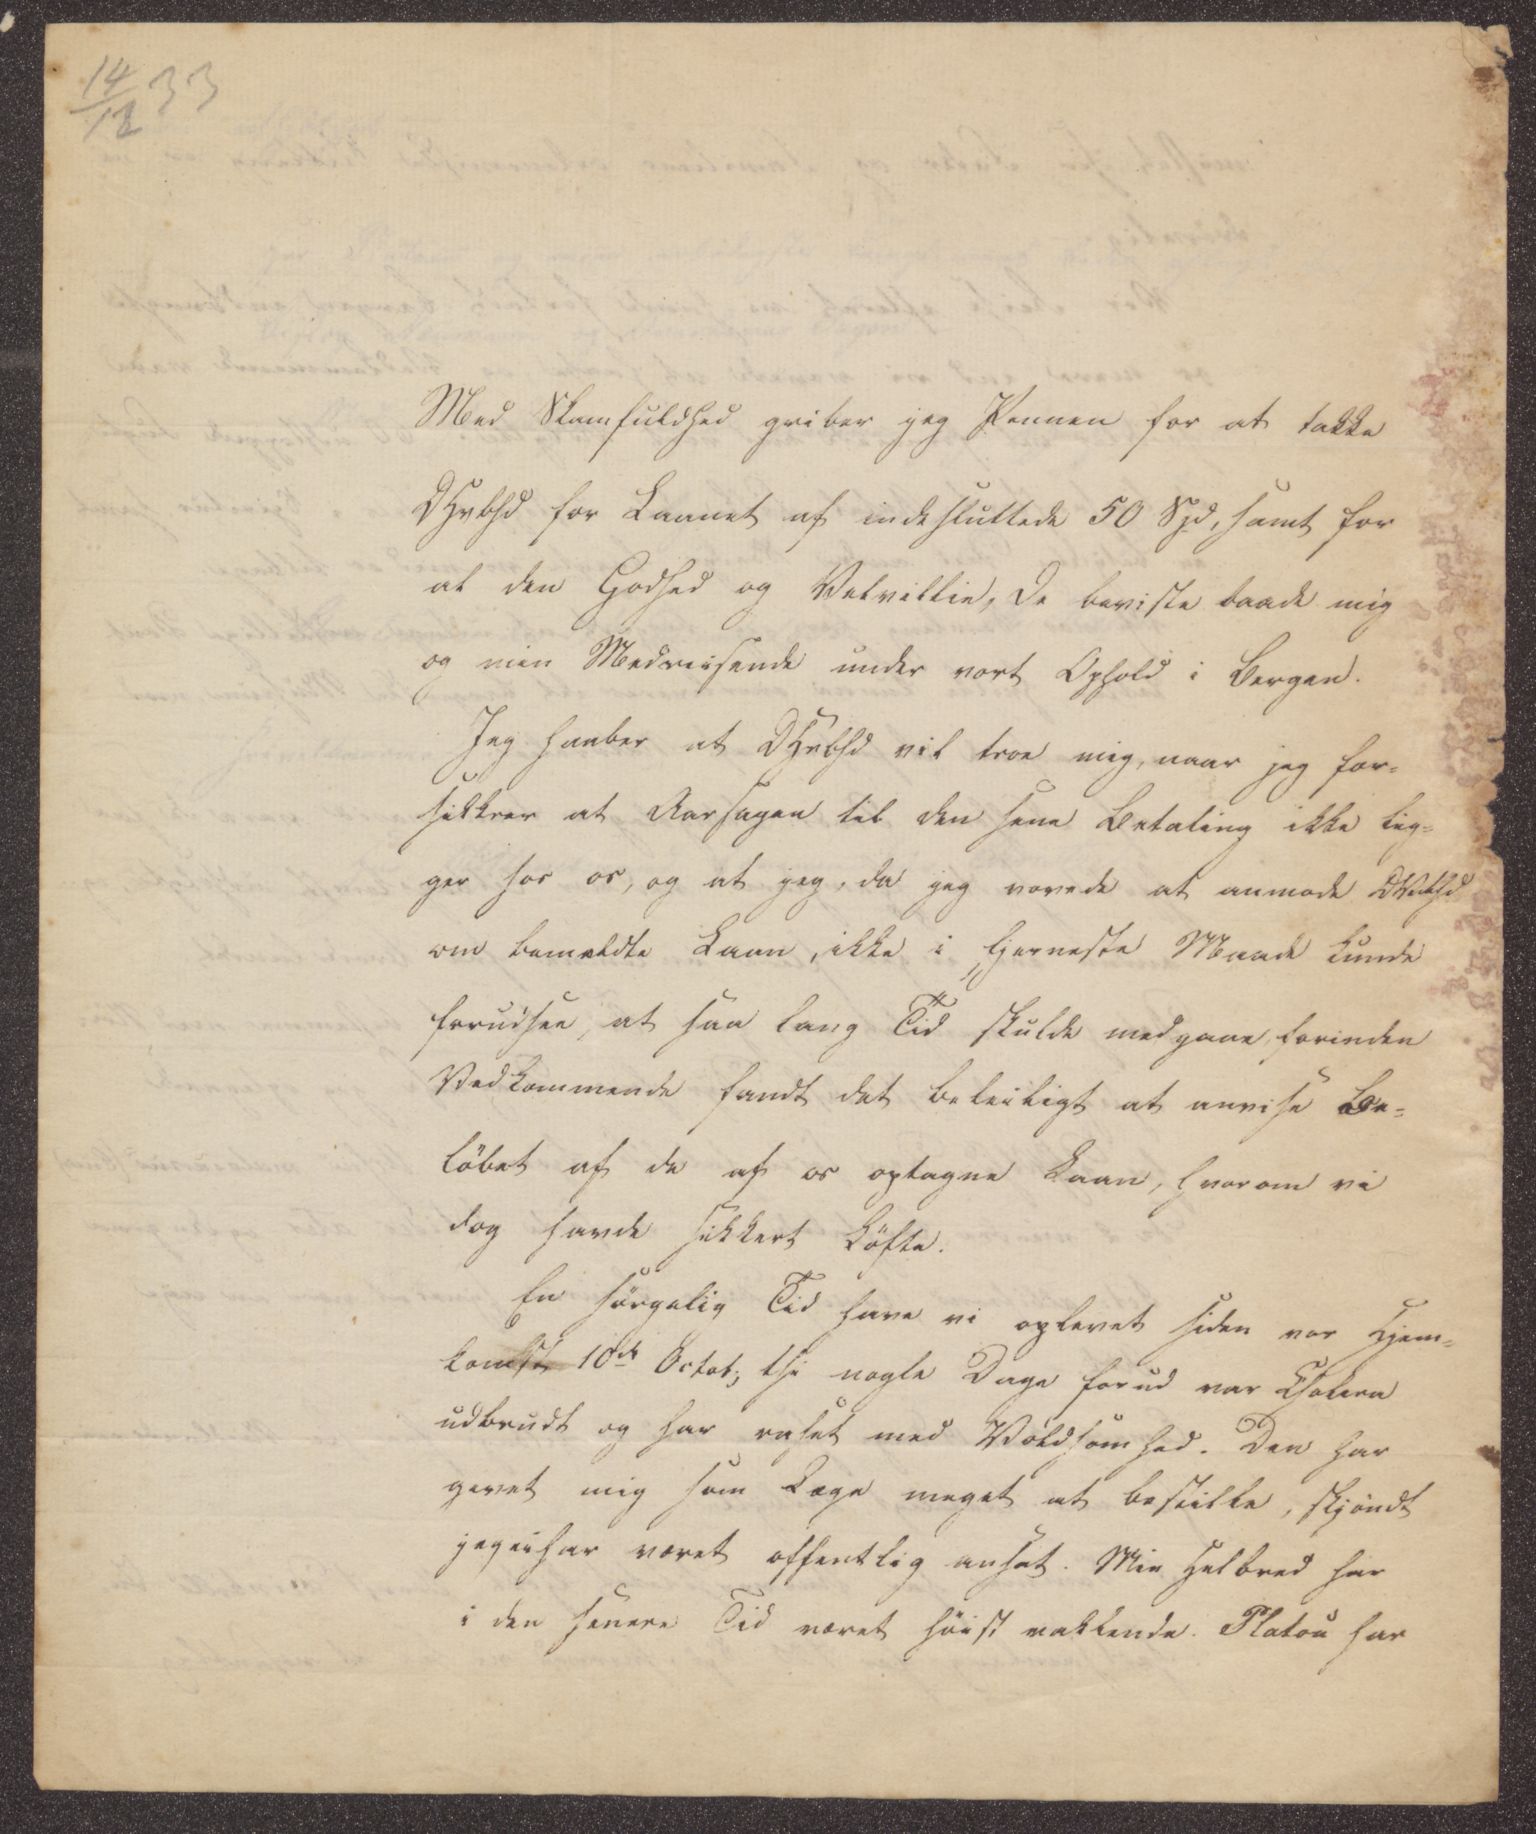 14/12 33
Med Skamfuldhed griber jeg Pennen for at takke
DHrbhd for Laanet af indesluttede 50 Spd, samt for
al den Godhed og Velvillie, De beviste baade mig
og min Medreisende under vort Ophold i Bergen.
Jeg haaber at DHrbhd vil troe mig, naar jeg for=
sikkrer at Aarsagen til den sene Betaling ikke lig=
ger hos os, og at jeg, da jeg vovede at anmode
om bemeldte Laan, ikke i fjerneste Maade kunde
forudsee, at saa lang Tid skulde medgaae, forinden
Vedkommende fandt det beleiligt at anvise Be=
löbet af de af os optagne Laan, hvorom vi
dog havde sikkert Löfte.
En sörgelig Tid have vi oplevet siden vor Hjem=
komst 10de Octob; thi nogle Dage forud var Cholera
udbrudt og har raset med Voldsomhed. Den har
gevet mig som Læge meget at bestille, skjöndt
jeg ei har været offentlig ansat. Min Helbred har
i den senere Tid været höist vaklende. Platou har